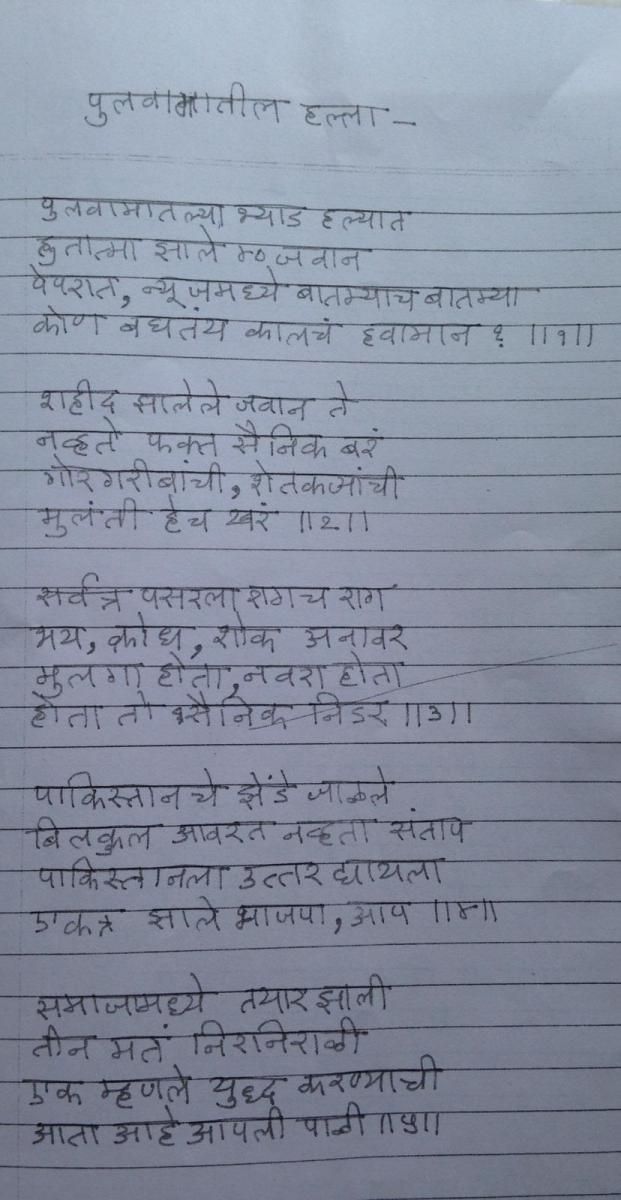 पुलवामातील हल्ला –
पुलवामातल्या भ्याड हल्यात
हुतात्मा झाले ४० जवान
पेपरात, न्यूजमध्ये बातम्याच बातम्या
कोण बघतंय कालचं हवामान ? ॥१॥
शहीद झालेले जवान ते
नव्हते फक्त सैनिक बरं
गोरगरीबांची, शेतकऱ्यांची
मुलं ती हेच खरं ॥२॥
सर्वत्र पसरला रागच राग
भय, क्रोध, शोक अनावर
मुलगा होता, नवरा होता
होता तो सैनिक निडर ॥३॥
पाकिस्तानचे झेंडे जाळले
बिलकुल आवरत नव्हता संताप
पाकिस्तानला उत्तर द्यायला
एकत्र झाले भाजपा, आप ॥४॥
समाजामध्ये तयार झाली
तीन मतं निरनिराळी
एक म्हणले युद्ध करण्याची
आता आहे आपली पाळी ॥५॥